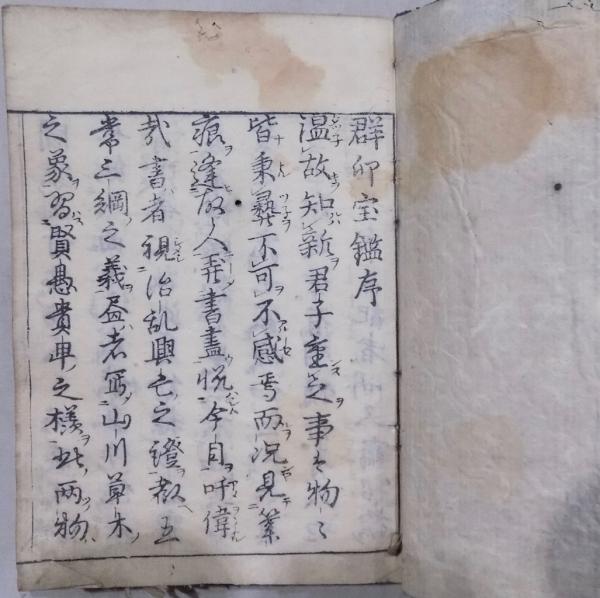 群卯宝鑑序
温故知新君子重之事々物々
皆秉彜不可不感焉而况見筆
痕逢故人弄書畫悦今目吁偉
哉書者視治乱興亡之證教五
常三綱之義画者写山川草木
之象習賢愚貴卑之様此両物